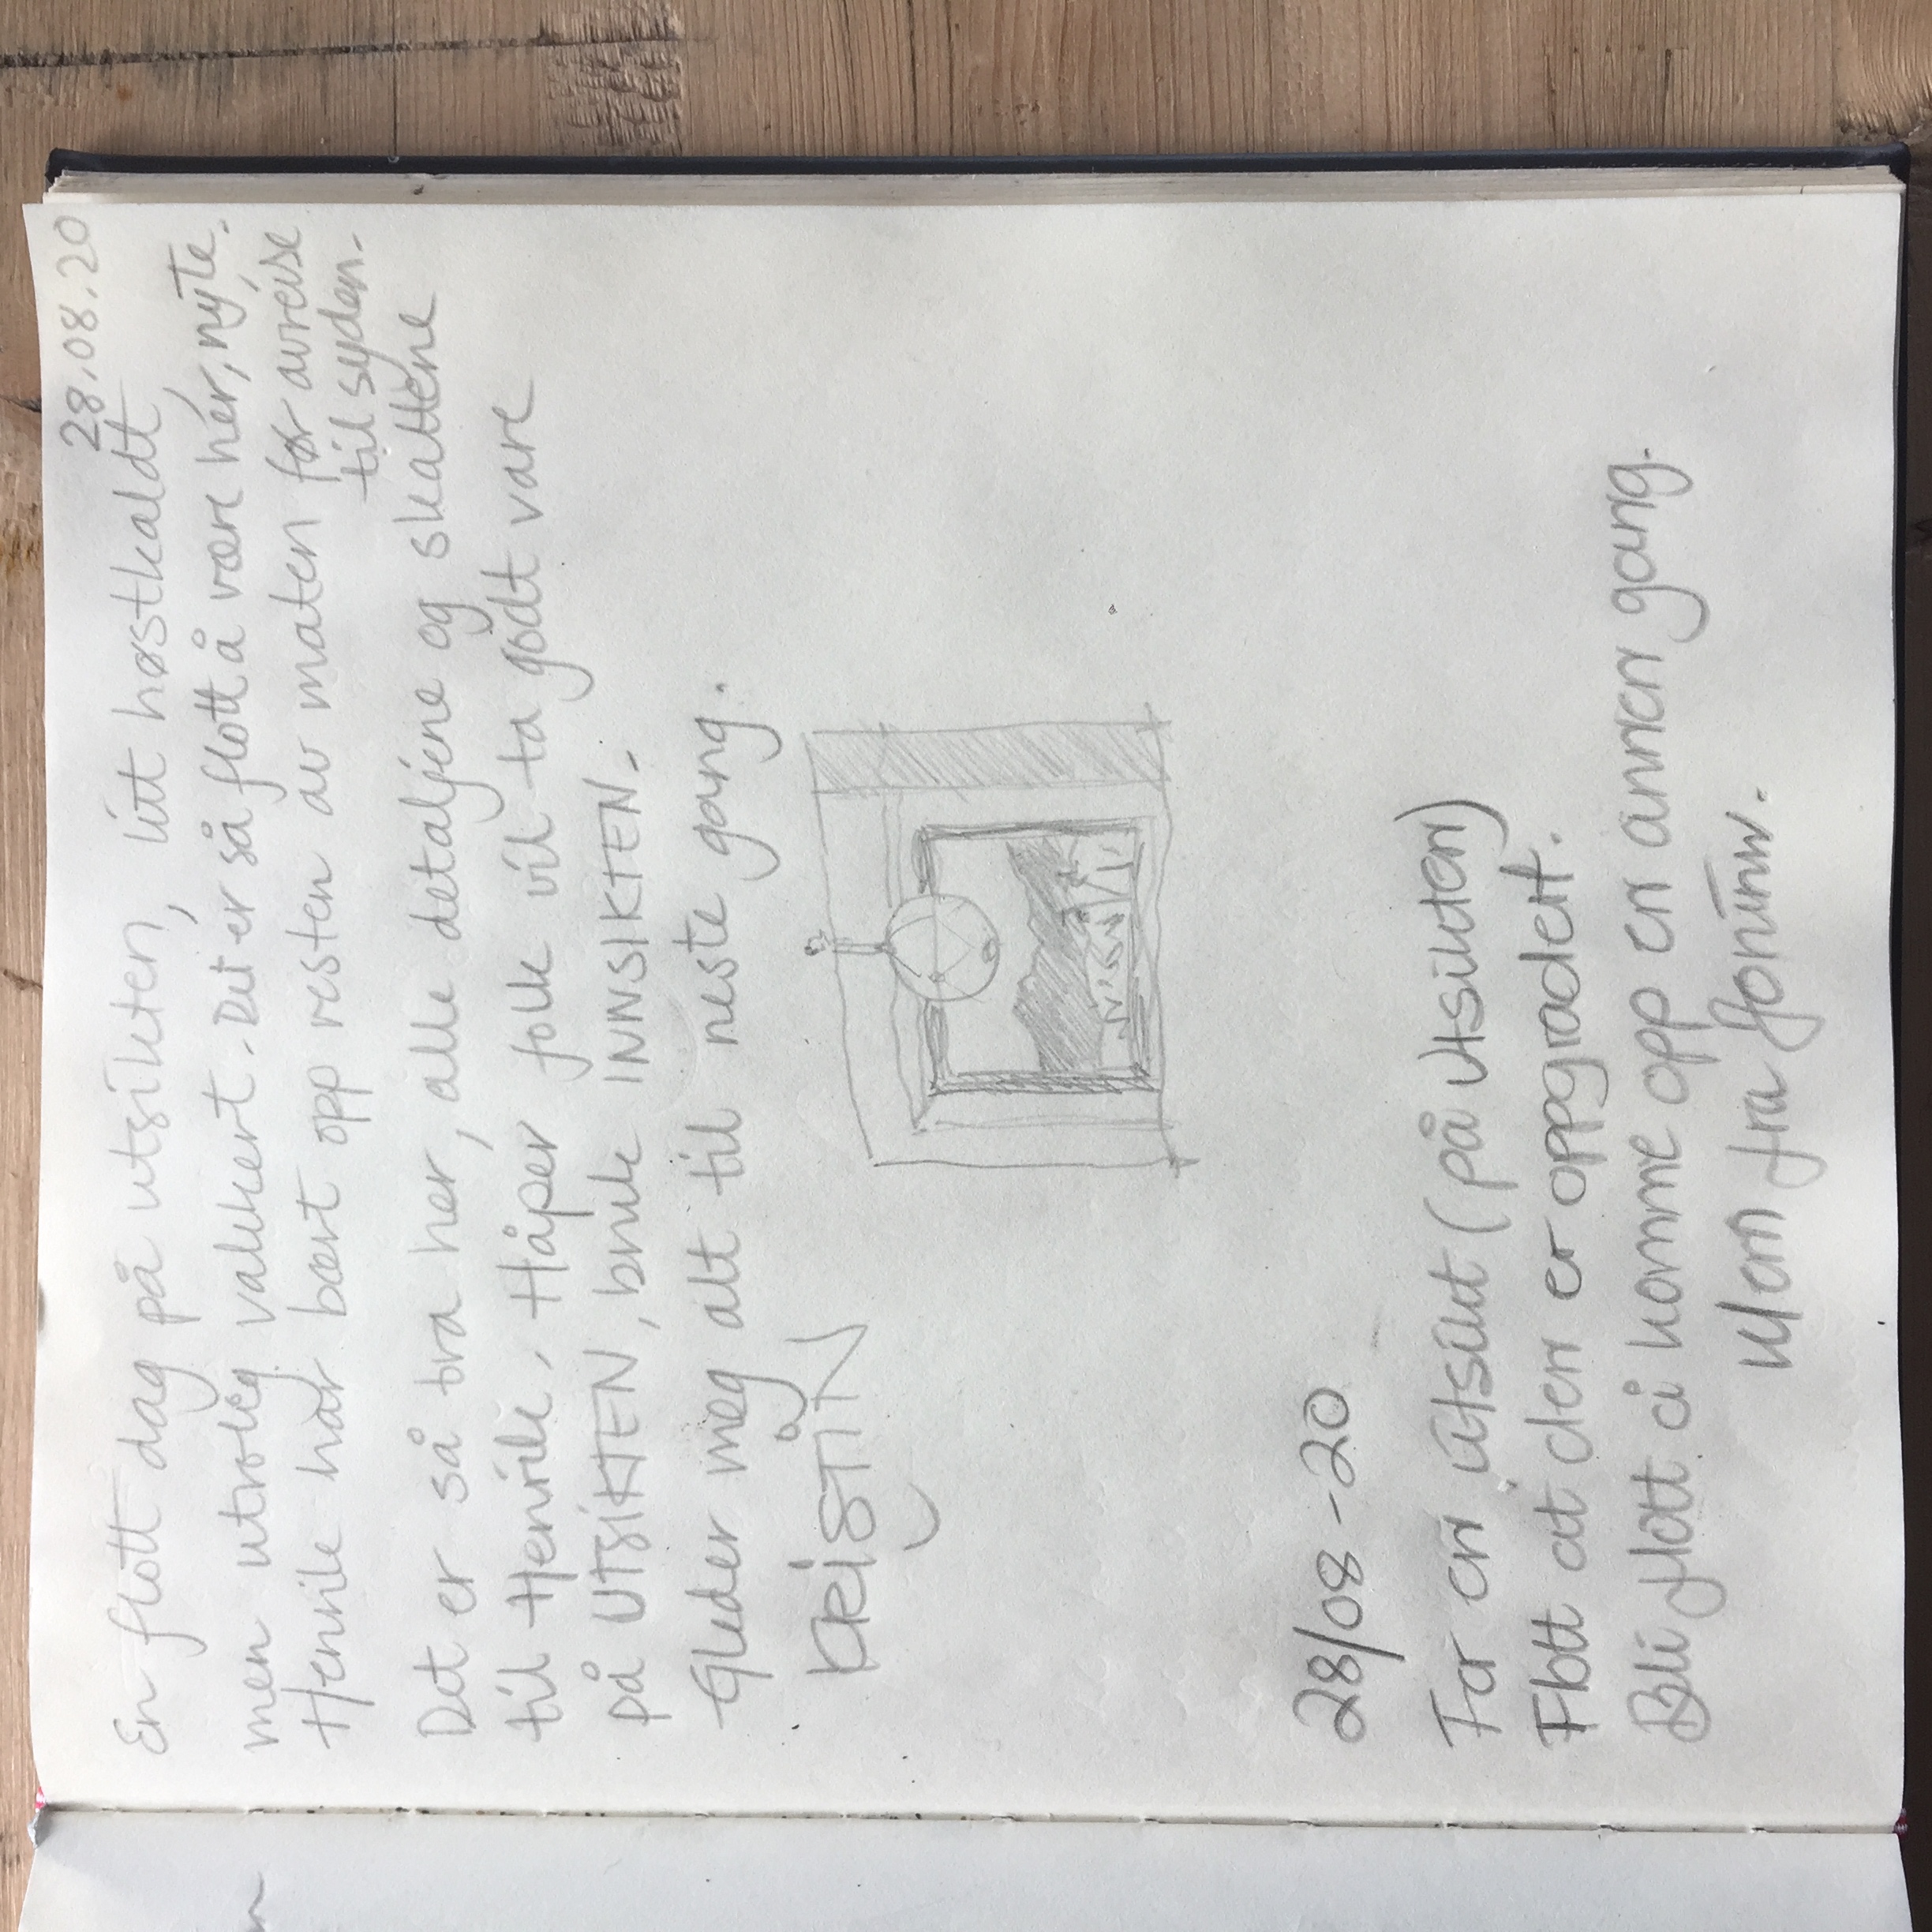 28.08.20
En flott dag på utsikten, litt høstkaldt
men utrolig vakkert. Det er så flott å være her, nyte.
Henrik har bært opp resten av maten før avreise
til syden.
Det er så bra her, alle detaljene og skattene
til Henrik, Håper folk vil ta godt vare
på UTSIKTEN, bruk INNSIKTEN.
Gleder meg alt til neste gang.
KRISTIN
28/08-20
For en utsikt (på utsikten)
Flott at den er oppgradert.
Bli flott å komme opp en annen gang.
Klem fra